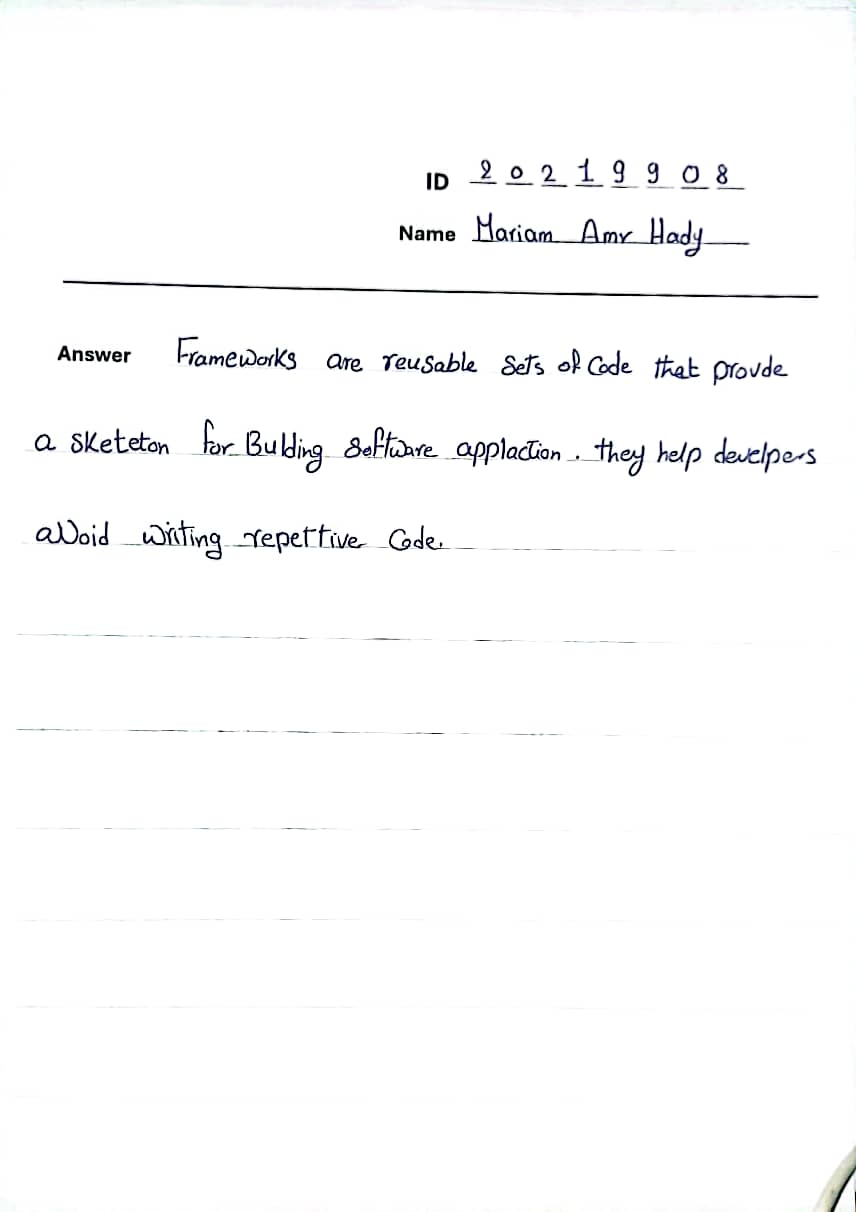 ID 20219908
Name Mariam Amr Hady
Answer Frameworks are reusable sets of Code that provde
a sketeton for Bulding software applaction. they help develpers
avoid writing repettive Code.